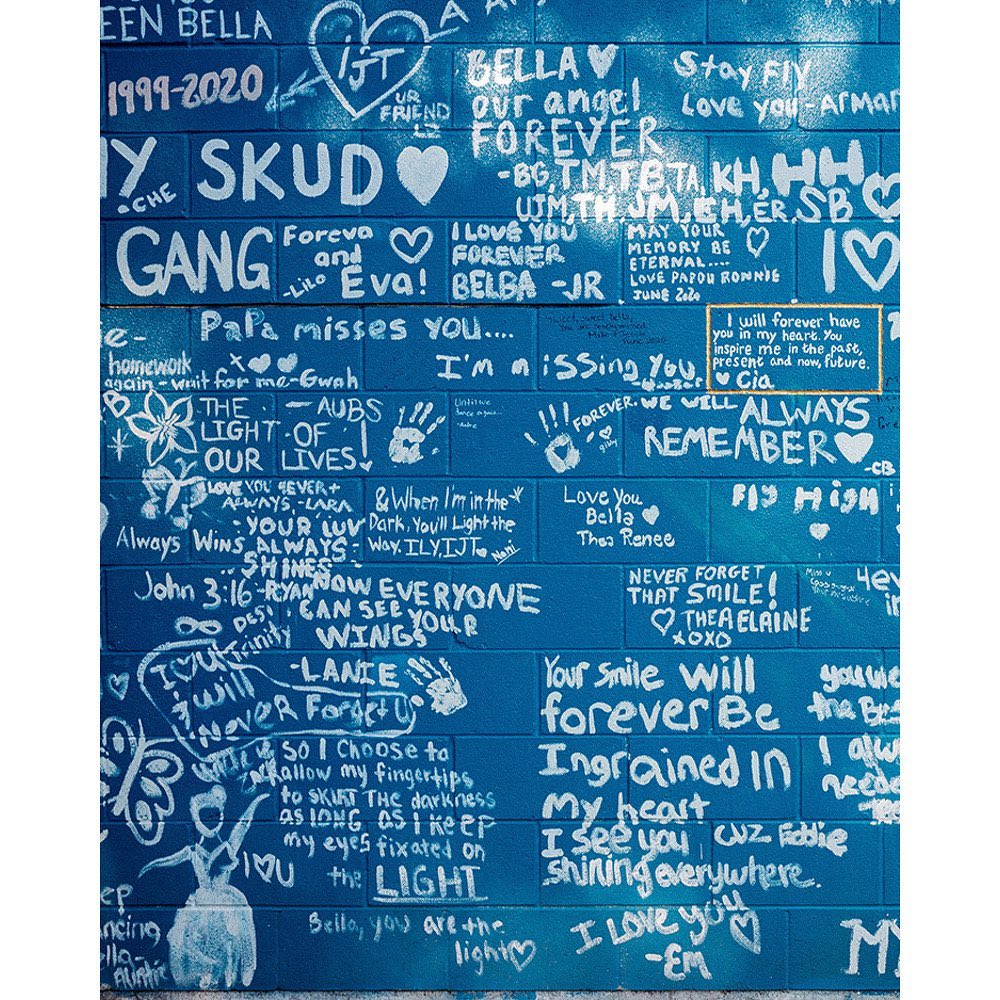 EEN BELLA
1999-2020
IJT
UR
FRIEND
LZ
BELLA
our angel
FOREVER
-BG, TM, TB, TA, KH, HH
WM, TH, JM, EH, ER, SB
Stay FLY
Love you - ARMAN
Y SKUD
.CHE
GANG
Foreva
and
-Lilo Eva!
I LOVE YOU
FOREVER
BELBA -JR
MAY YOUR
MEMORY BE
ETERNAL....
LOVE PAPOU RONNIE
JUNE 2020
I
PaPa misses you....
homework
again - wait for me - Gwah
I'm missing you
I will forever have
you in my heart. You
inspire me in the past,
present and now, future.
Cia
THE - AUBS
LIGHT OF
OUR LIVES!
Until we
dance again...
FOREVER.
WE WILL ALWAYS
REMEMBER
-CB
LOVE YOU 4EVER +
ALWAYS, - LARA
Always Wins
- YOUR LUV
ALWAYS -
SHINES -
-RYAN
& When I'm in the
Dark, You'll Light the
Way. ILY, IJT
Noni
Love You
Bella
Thea Renee
Fly High
John 3:16
DESI
Trinity
NOW EVERYONE
CAN SEE YOUR
WINGS
-LANIE
NEVER FORGET
THAT SMILE!
THEA ELAINE
XOXO
I U
I will
Never Forget U
Your Smile will
forever Be
Ingrained In
my heart
I see you
shining everywhere.
cuz Eddie
you we
the Bes
I alw
neede
So I choose to
allow my fingertips
to SKIRT THE darkness
AS LONG AS I KEEP
my eyes fixated on
the LIGHT
I U
ep
ncing
lla-
Auntie
Bella, you are the
light
I Love you
-Em
MY